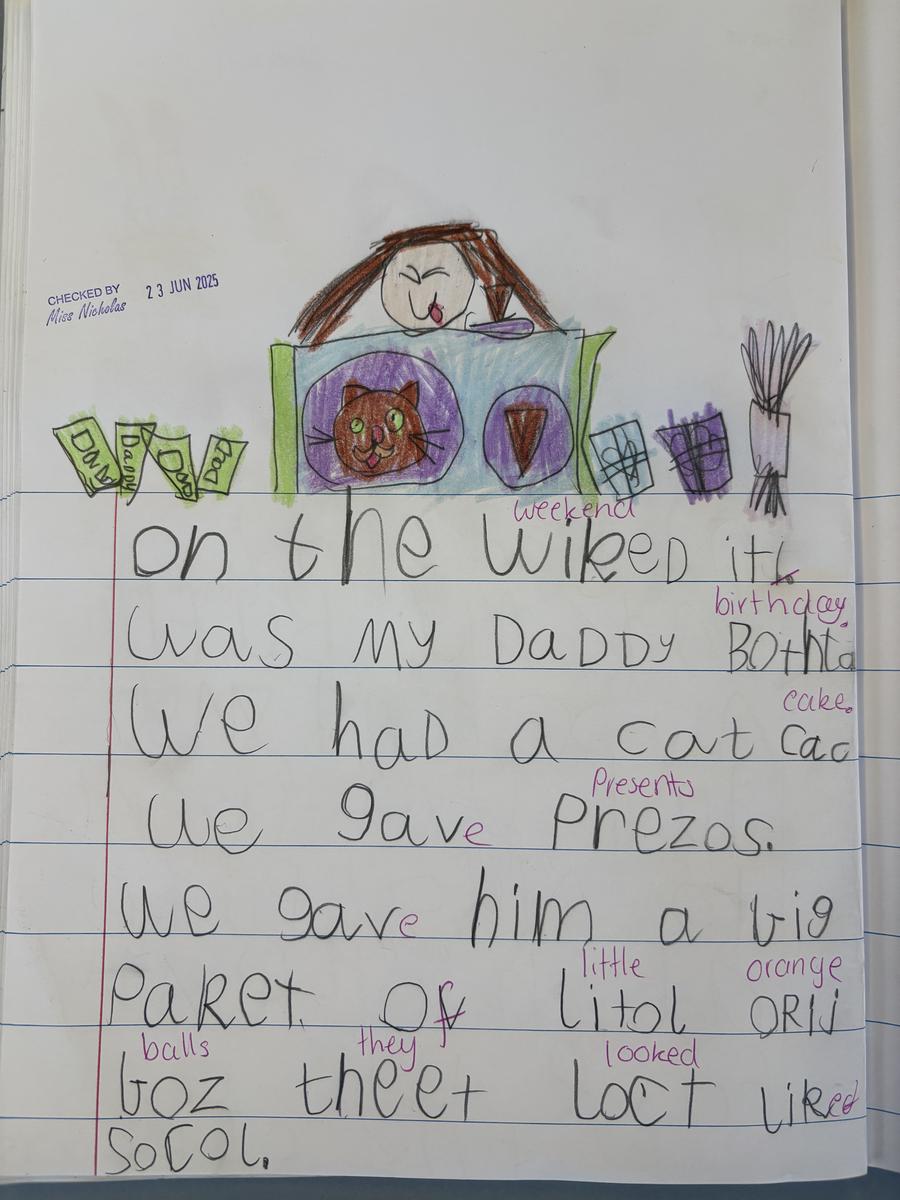 CHECKED BY 23 JUN 2025
Miss Nicholas
Daddy
weekend
on the wikeD it
birthday.
was my DaDDy Bothta
cake.
We haD a cat cac
Presents
we gave Prezos.
we gave him a big
little orange
PaKet of litol ORIJ
balls they looked
boz theet loct liked
socol.